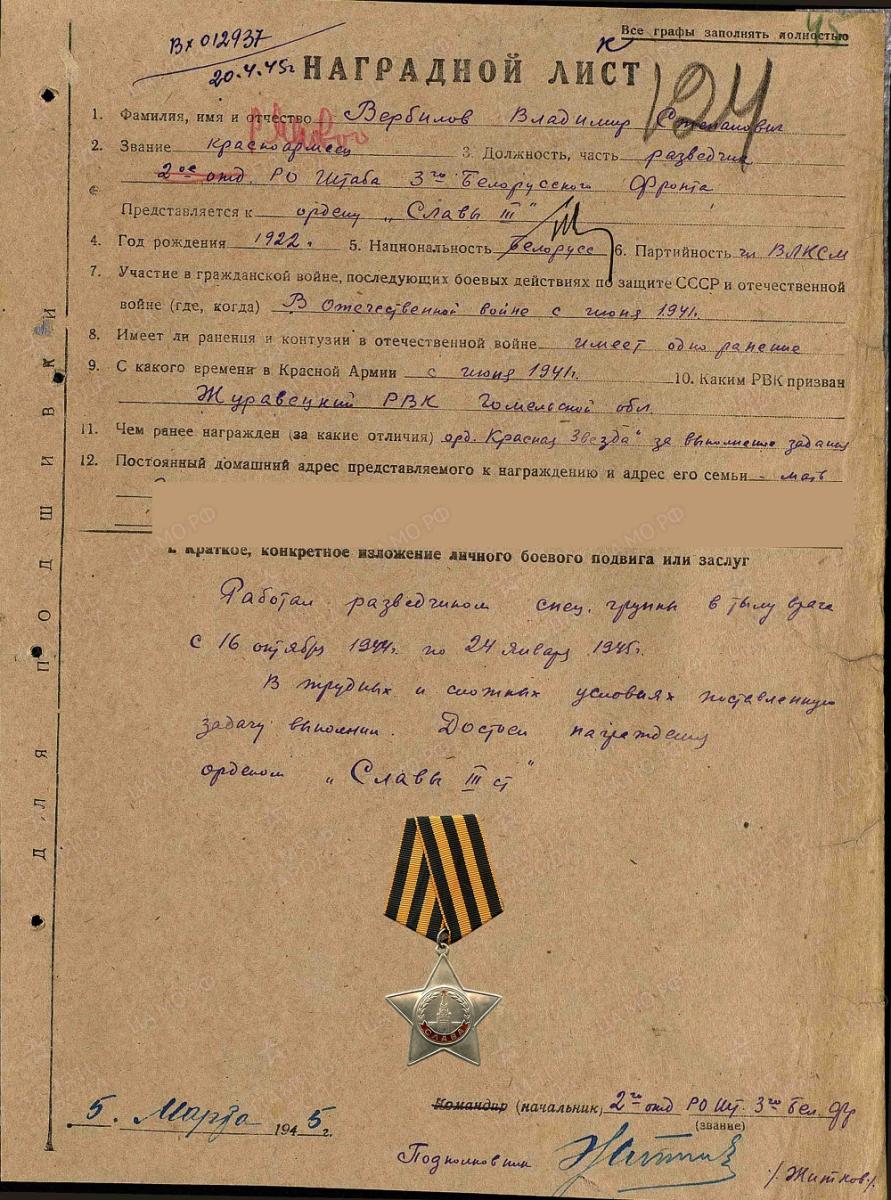 Все графы заполнять полностью
Вх 012937
20.4.45г
НАГРАДНОЙ ЛИСТ
124
1. Фамилия, имя и отчество Вербилов Владимир Степанович
2. Звание красноармеец 3. Должность, часть разведчик
2ое отд. РО Штаба 3го Белорусского Фронта
Представляется к ордену „Славы III"
4. Год рождения 1922г. 5. Национальность белорусс 6. Партийность чл ВЛКСМ
7. Участие в гражданской войне, последующих боевых действиях по защите СССР и отечественной
войне (где, когда) В Отечественной войне с июня 1941г.
8. Имеет ли ранения и контузии в отечественной войне имеет одно ранение
9. С какого времени в Красной Армии с июня 1941г. 10. Каким РВК призван
Журавецкий РВК Гомельской обл.
11. Чем ранее награжден (за какие отличия) орд. Красная Звезда" за выполнение задания
12. Постоянный домашний адрес представляемого к награждению и адрес его семьи - мать
I. Краткое, конкретное изложение личного боевого подвига или заслуг
Работал разведчиком спец. группы в тылу врага
с 16 октября 1944г. по 24 января 1945г.
В трудных и сложных условиях поставленную
задачу выполнил. Достоин награждения
орденом „Славы III ст"
СЛАВА
5. Марта 1945г.
Командир (начальник) 2го отд РО Шт. 3го Бел. Фр
(звание)
Подполковник /Житков/.
ДЛЯ ПОДШИВКИ
ЦАМО РФ